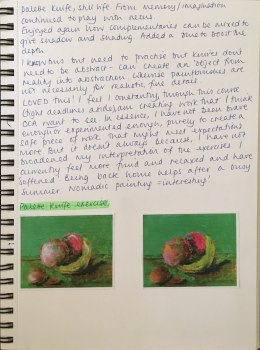 palette knife, still life from memory/imagination
continued to play with
Enjoyed again how complementaries can be mixed to
give shadow and shading. Added a to boost the
depth.
I but need to practise but knives don't
need to be abstract - can create an object from
reality into abstraction likewise paintbrushes are
not necessarily for realistic, fine detail.
LOVED this! I feel I constantly, through this course
(tight deadlines aside) am creating work that I think
OCA want to see. In essence, I have not been brave
enough or experimented enough, purely to create a
safe piece of work that might meet expectations
more. But it doesn't always because, I have not
broadened my interpretation of the exercises. I
currently feel more fluid and relaxed and have
softened. Being back home helps after a busy
summer. Nomadic painting = interesting!
Palette Knife exercise,